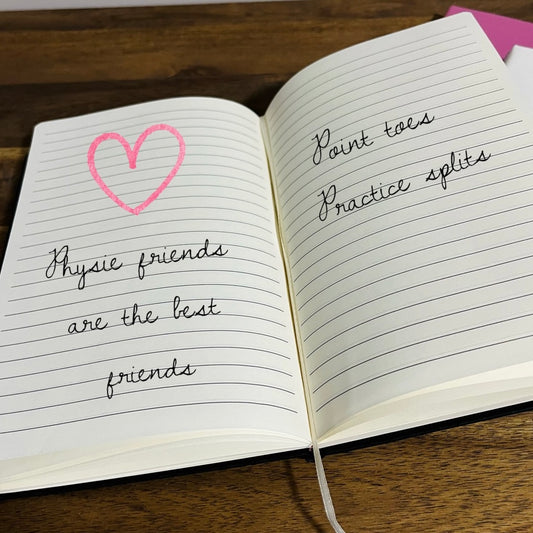 Physie friends
are the best
friends
Point toes
Practice splits